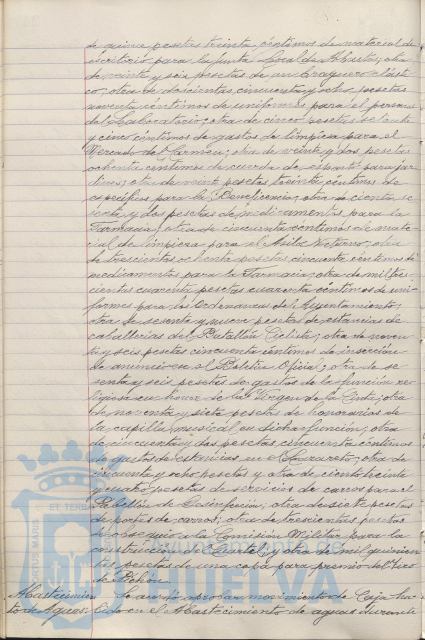 de quince pesetas treinta céntimos de material de
escritorio para la Junta Local de Abastos; otra
de veinte y seis pesetas de un braguero elásti-
co; otra de doscientas cincuenta y ocho pesetas
noventa céntimos de uniformes para el personal
del Laboratorio; otra de cinco pesetas setenta
y cinco céntimos de gastos de limpieza para el
Mercado del Carmen; otra de veinte y dos pesetas
ochenta céntimos de cuerda de esparto para jar-
dines; otra de veinte pesetas treinta céntimos de
específicos para la Beneficencia; otra de ciento se-
senta y dos pesetas de medicamentos para la
Farmacia; otra de cincuenta céntimos de mate-
rial de limpieza para el Asilo Nocturno; otra
de trescientas ochenta pesetas cincuenta céntimos de
medicamentos para la Farmacia; otra de mil tres-
cientas cuarenta pesetas cuarenta céntimos de uni-
formes para los Ordenanzas del Ayuntamiento;
otra de sesenta y nueve pesetas de estancias de
caballerías del Batallón Ciclista; otra de noven-
ta y seis pesetas cincuenta céntimos de inserción
de anuncios en el Boletín Oficial; otra de se-
senta y seis pesetas de gastos de la función re-
ligiosa en honor de la Virgen de la Cinta; otra
de noventa y siete pesetas de honorarios de
la capilla musical en dicha función; otra
de cincuenta y dos pesetas cincuenta céntimos
de gastos de estancias en el Lazareto; otra de
cincuenta y ocho pesetas y otra de ciento treinta
y cuatro pesetas de servicios de carros para el
Pabellón de Desinfección; otra de siete pesetas
de portes de carros; otra de trescientas pesetas
de obsequio a la Comisión Militar para la
construcción del Cuartel, y otra de mil quinien-
tas pesetas de una copa para premio del Tiro
de Pichón.
Abastecimien- Se acordó aprobar movimiento de Caja ha-
to de Aguas. bido en el Abastecimiento de aguas durante
ET TERRAE
PORTUS MARIS
HUELVA